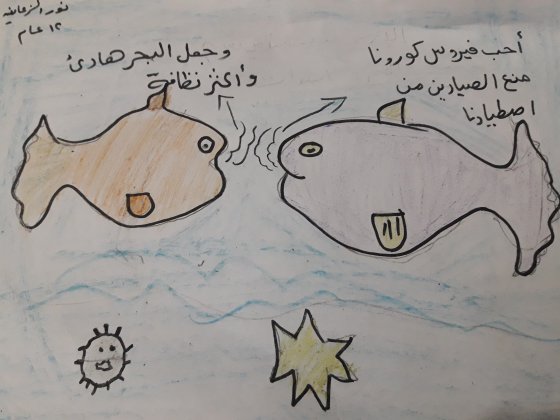 أحب فيروس كورونا
منع الصيادين من
اصطيادنا
وجعل البحر هادئ
وأكثر نظافة
نور
١٢ عام